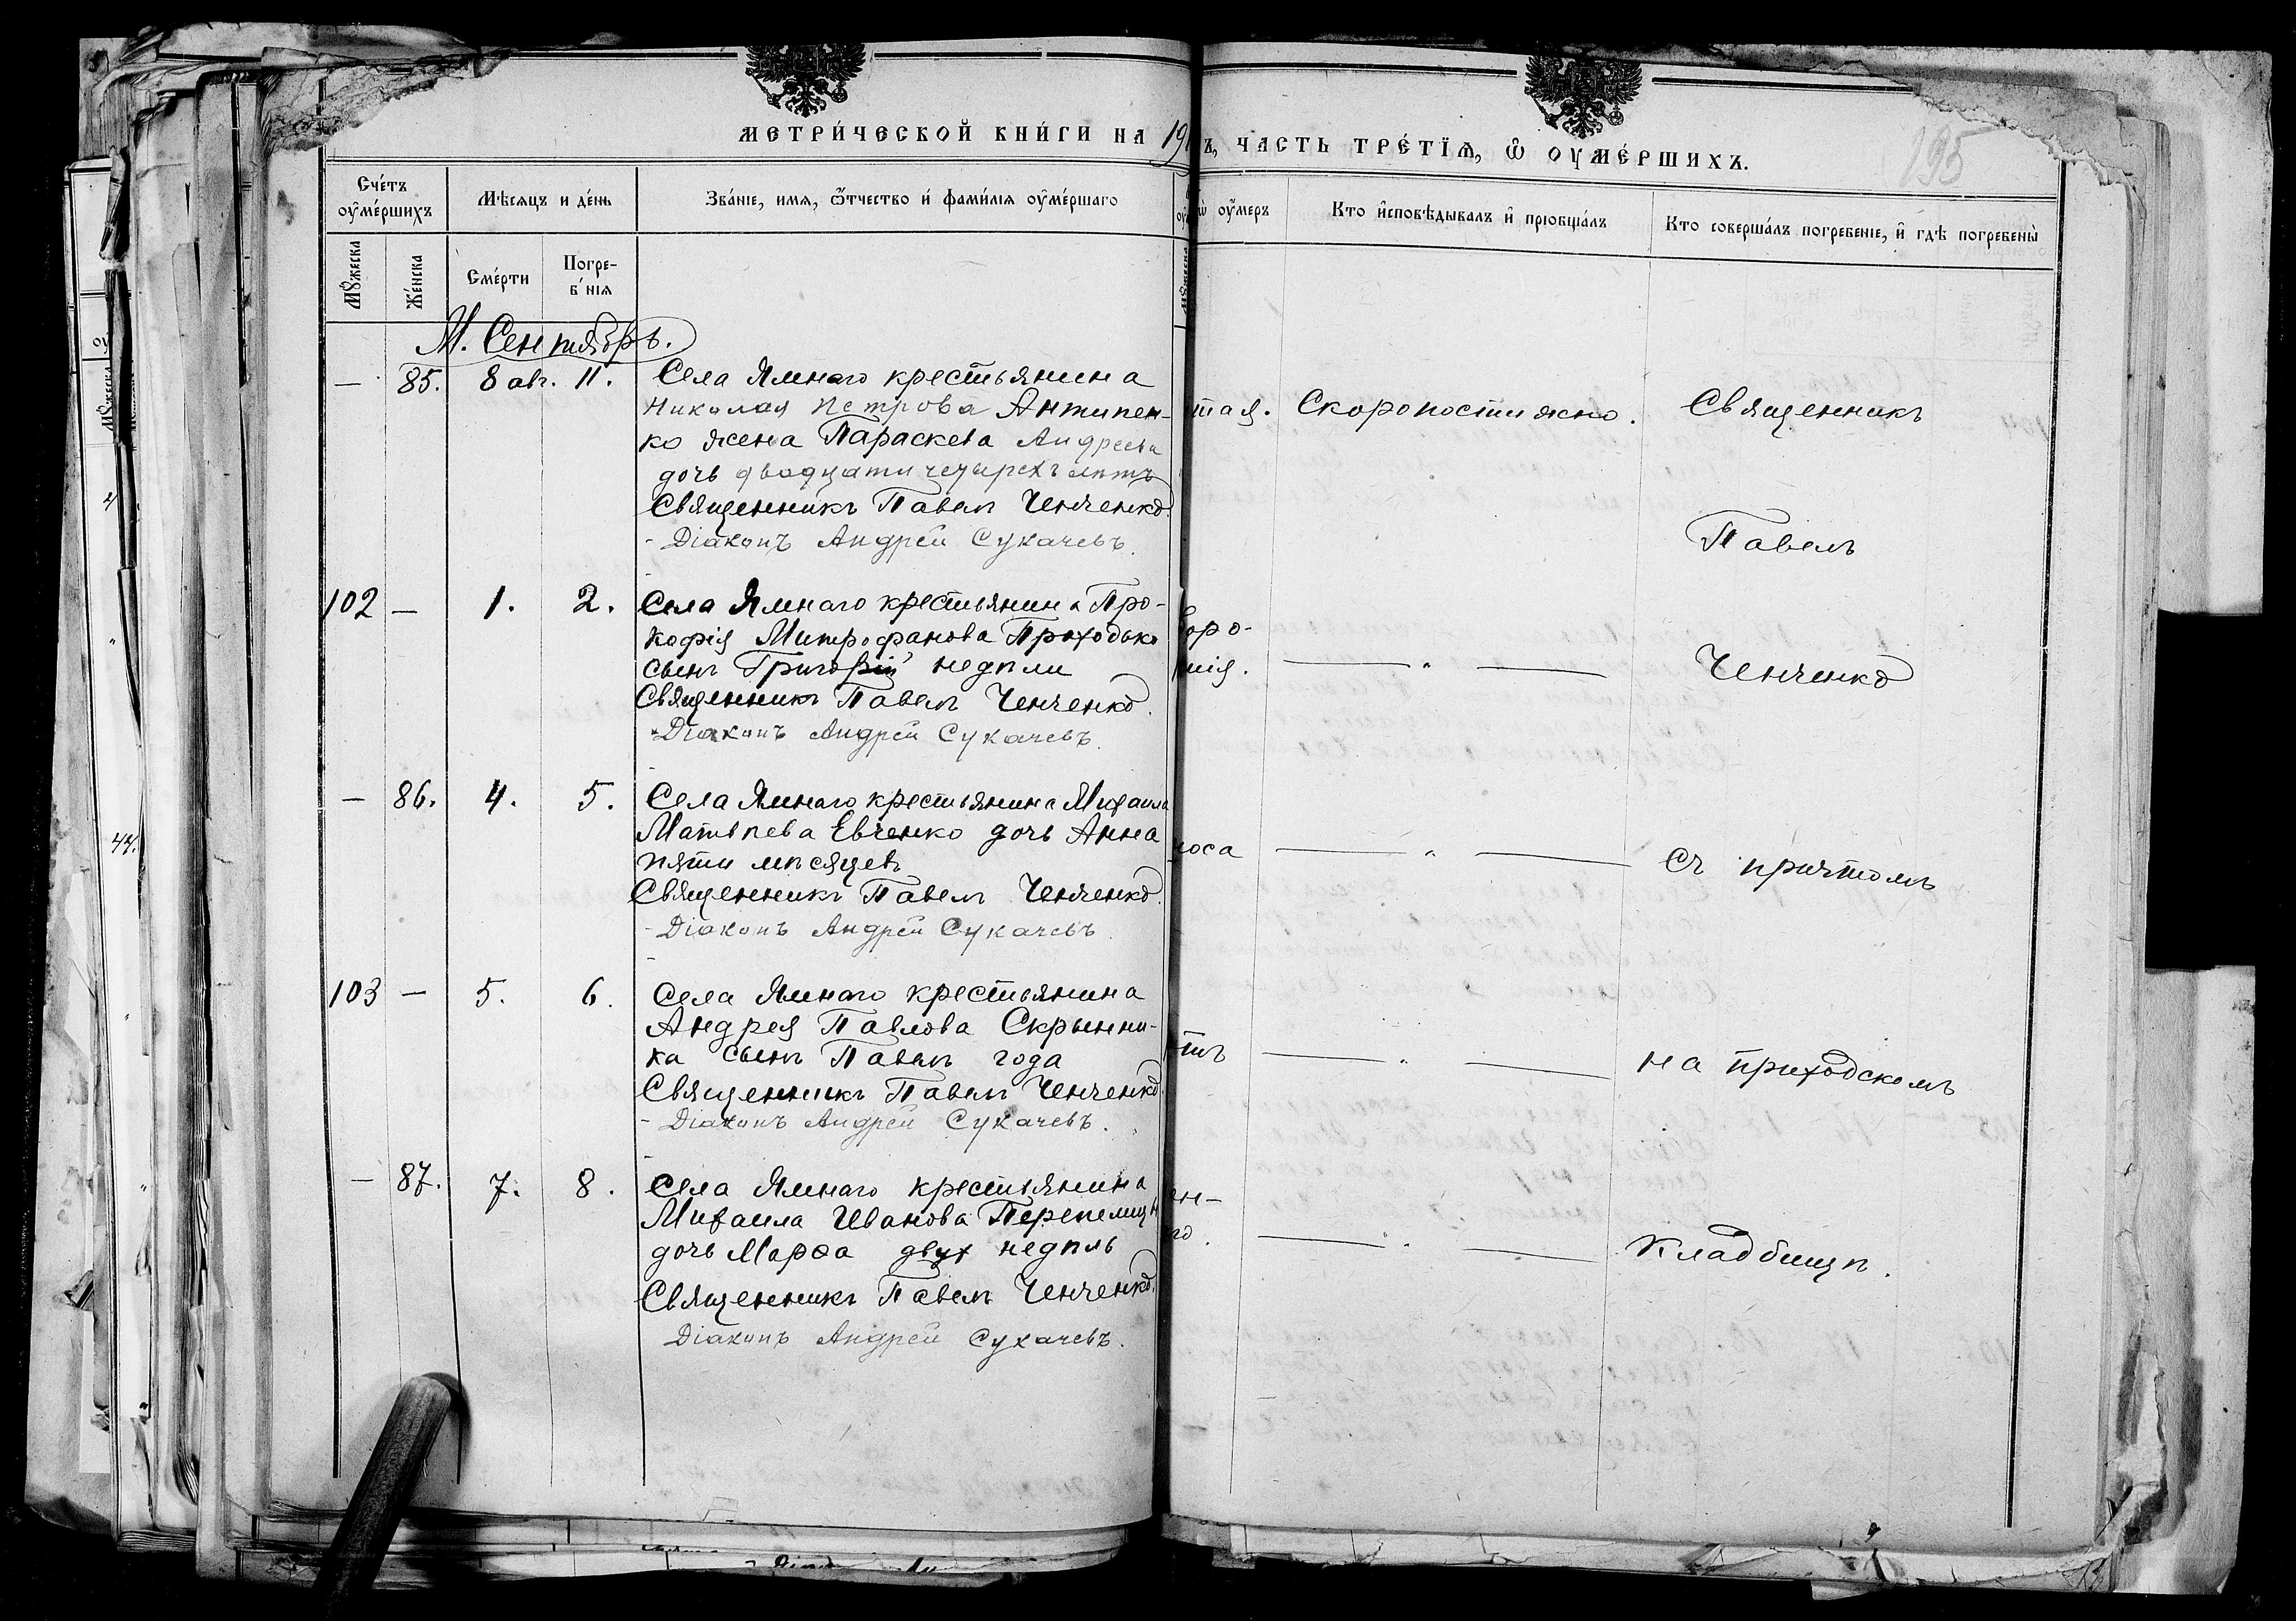 МЕТРИ́ЧЕСКОЙ КНИ́ГИ НА 19
Ъ, ЧАСТЬ ТРЕ́ТЇѦ, Ѽ ОУМЕ́РШИХЪ.
195
Сче́тъ оу҆ме́ршихъ
Мѣсяцъ и де́нь
Зва́нїе, имѧ, ѻ҆́тчество и҆ фами́лїѧ оу҆ме́ршагѡ
ѡ оу҆́меръ
Кто и҆сповѣ́дывалъ и҆ прїобща́лъ
Кто соверша́лъ погребенїе, и҆ гдѣ̀ погребены̀
Мꙋ́жеска
Же́нска
Сме́рти
Погре-
б́нїѧ
М. Сентябрь.
— 85. 8 авг. 11. Села Ямнаго крестьянина
Николая Петрова Антипен-
ко жена Параскева Андреева
дочь двадцати четырехъ лѣтъ
Священникъ Павелъ Ченченко.
Діаконъ Андрей Сукачевъ.
тая. Скоропостижно. Священникъ
Павелъ
102 — 1. 2. Села Ямнаго крестьянина Про-
кофія Митрофанова Приходько
сынъ Григорій недѣли
Священникъ Павелъ Ченченко.
Діаконъ Андрей Сукачевъ.
оро-
нія. — " — Ченченко
— 86. 4. 5. Села Ямнаго крестьянина Михаила
Матвѣева Евченко дочь Анна
пяти мѣсяцевъ
Священникъ Павелъ Ченченко.
Діаконъ Андрей Сукачевъ.
носа — " — съ причтомъ
103 — 5. 6. Села Ямнаго крестьянина
Андрея Павлова Скрынни-
ка сынъ Павелъ года
Священникъ Павелъ Ченченко.
Діаконъ Андрей Сукачевъ.
тъ — " — на приходскомъ
— 87. 7. 8. Села Ямнаго крестьянина
Михаила Иванова Перепелицы
дочь Марѳа двухъ недѣль
Священникъ Павелъ Ченченко.
Діаконъ Андрей Сукачевъ.
ен-
— " — кладбищѣ.
44.